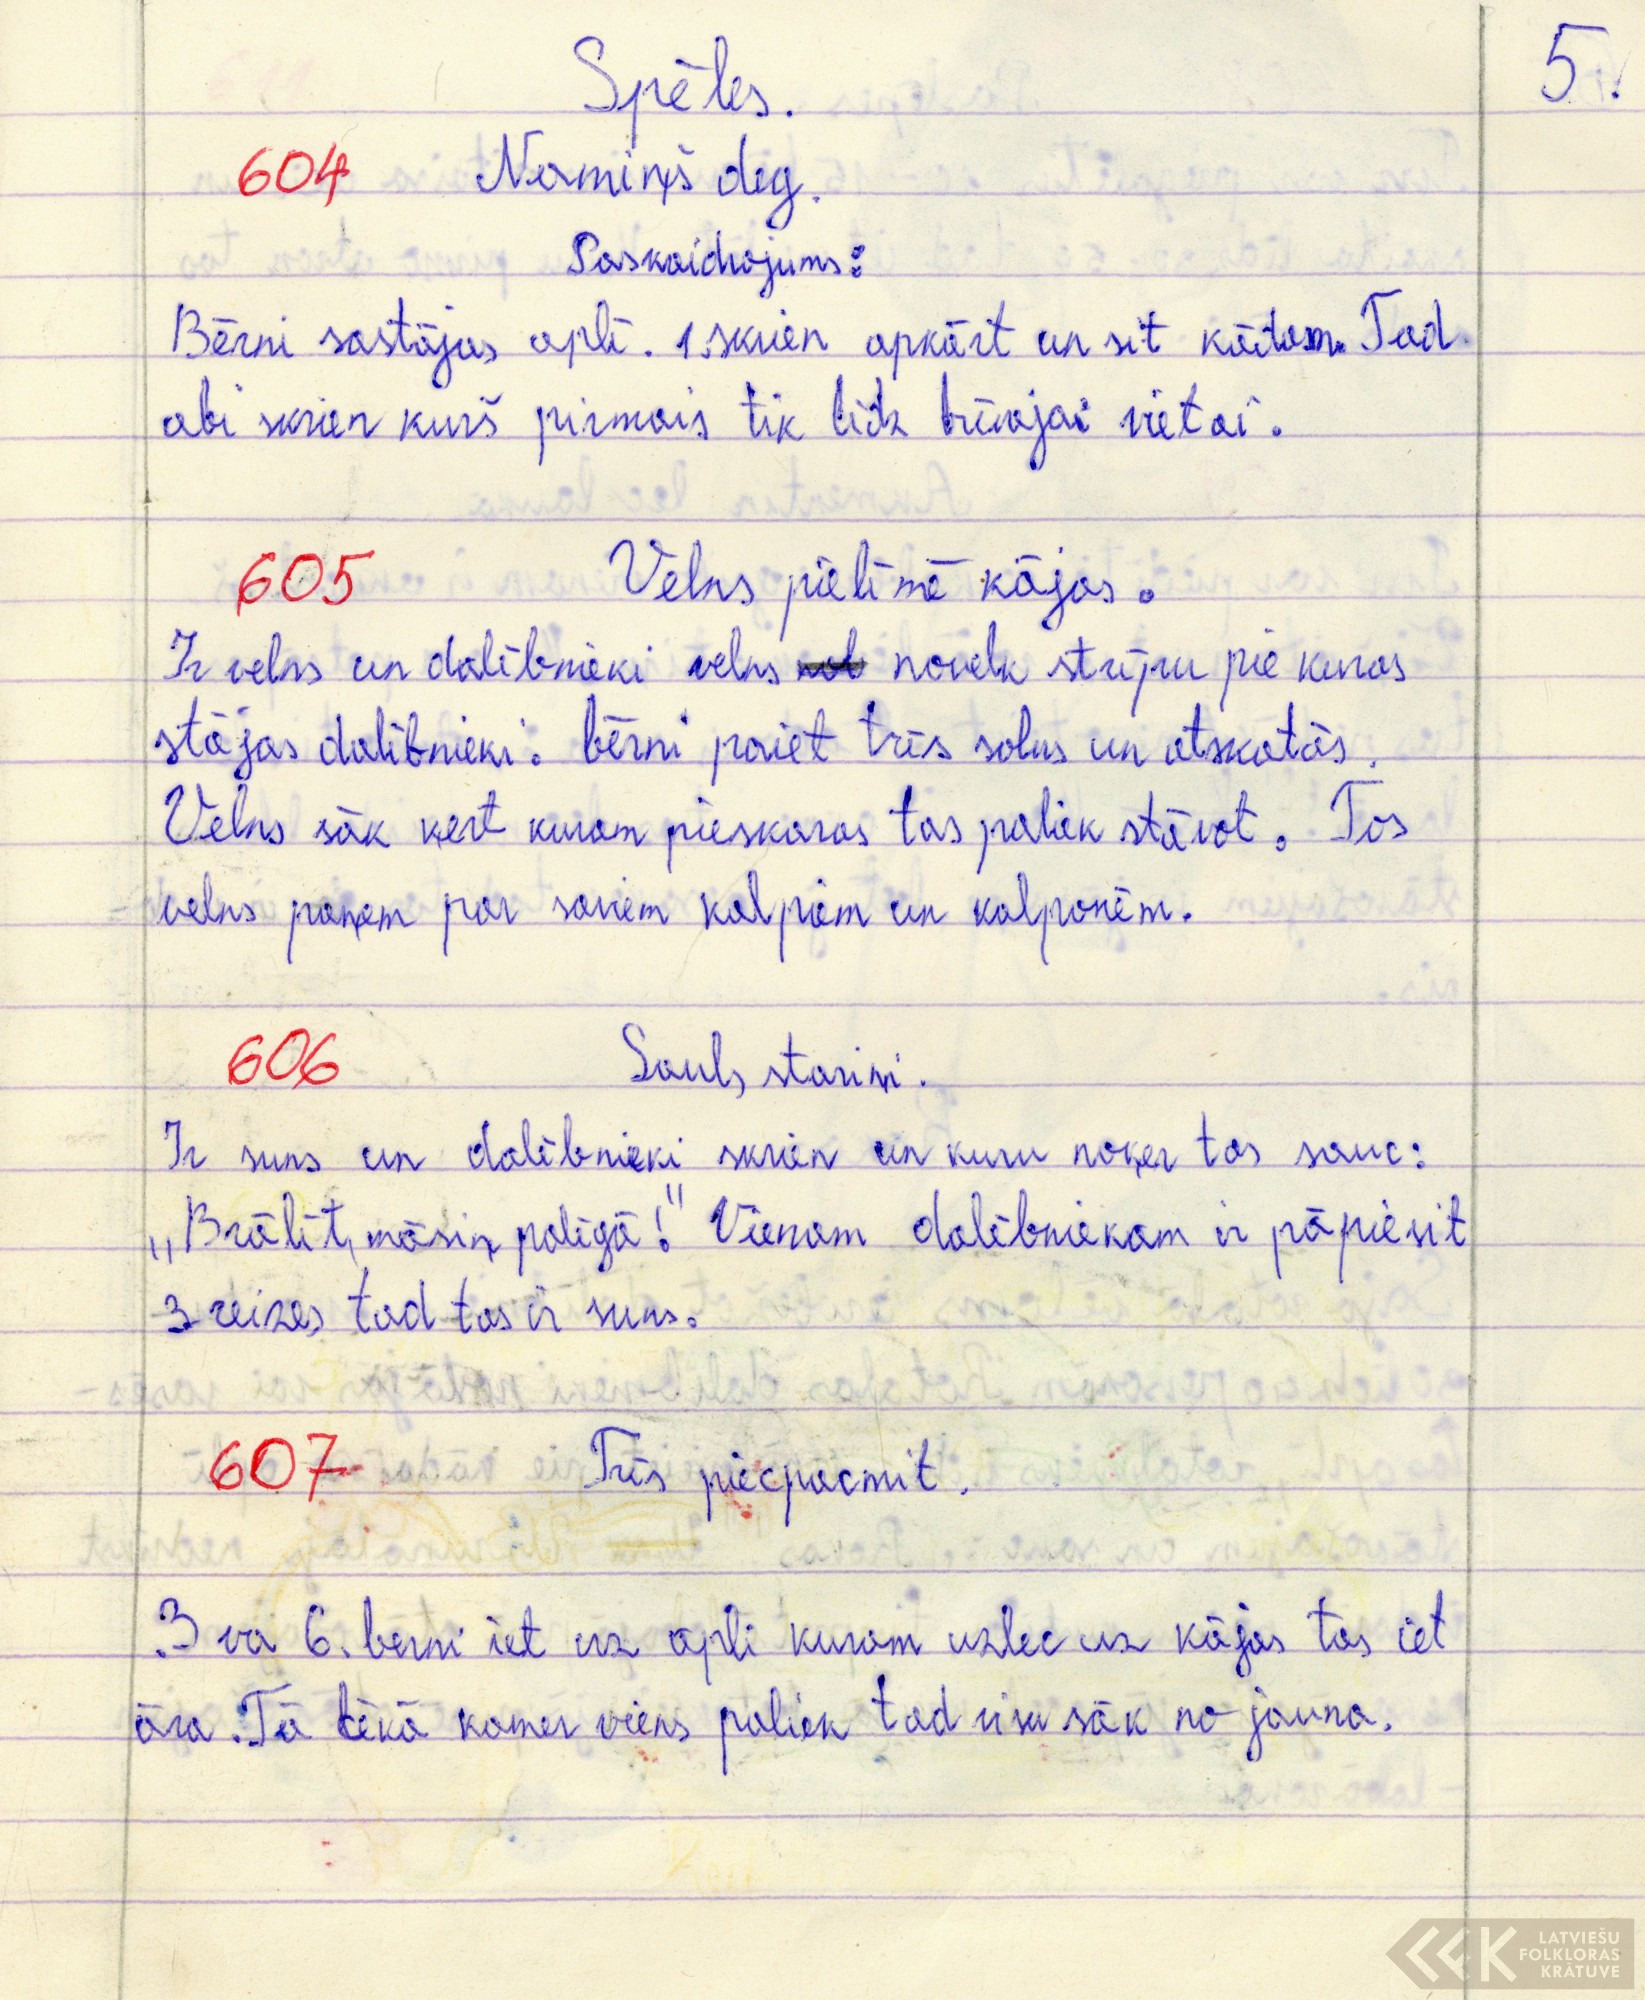 5.
Spēles.
604 Namiņš deg.
Paskaidrojums:
Bērni sastājas aplī. 1. skrien apkārt un sit kādam. Tad
abi skrien kurš pirmais tik līdz brīvajai vietai.
605 Velns pielīmē kājas.
Ir velns un dalībnieki velns novelk strīpu pie kuras
stājas dalībnieki. bērni paiet trīs soļus un atskatās.
Velns sāk ķert kuram pieskaras tas paliek stāvot. Tos
velns paņem par saviem kalpiem un kalponēm.
606 Saules stariņi.
Ir suns un dalībnieki skrien un kuru noķer tas sauc:
„Brālīt, māsiņ palīgā!" Vienam dalībniekam ir pāpiesit
3 reizes tad tas ir suns.
607 Trīs piecpacmit.
3 va 6. berni iet uz apli kuram uzlec uz kājas tas iet
āra. Tā tēkā kamer viens paliek tad visu sāk no jauna.
LATVIEŠU
FOLKLORAS
KRĀTUVE